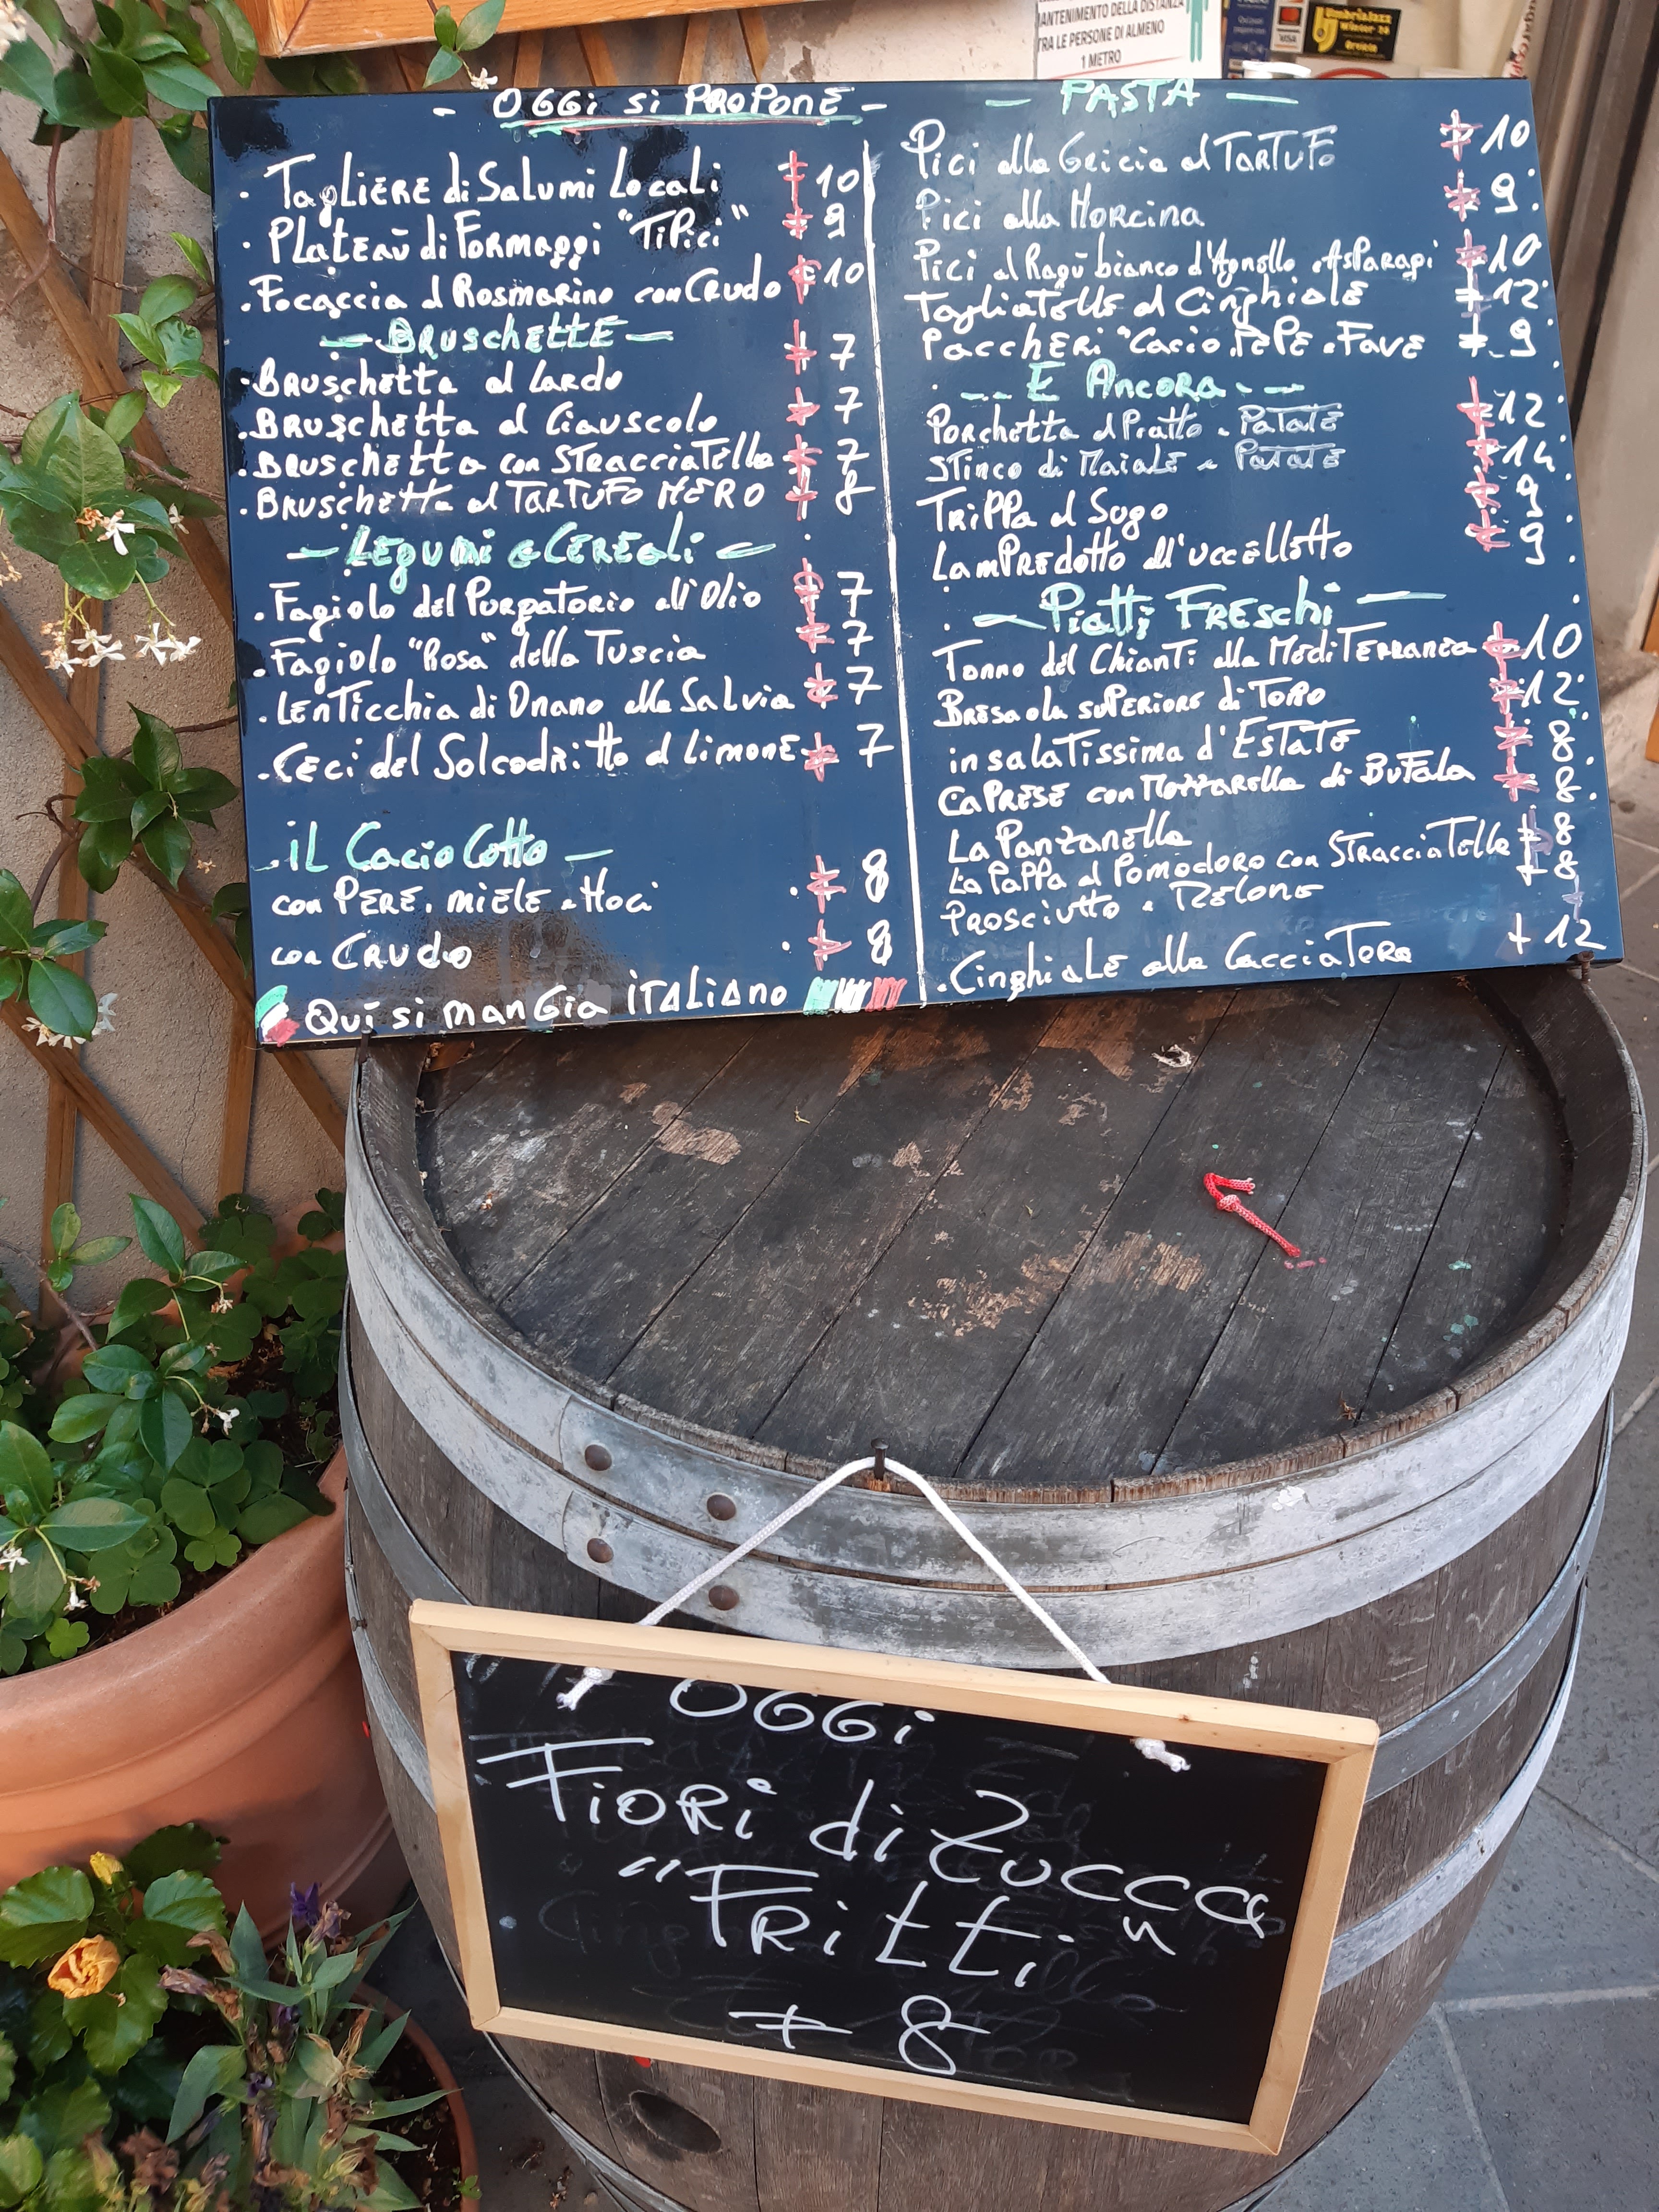 MANTENIMENTO DELLA DISTANZA
TRA LE PERSONE DI ALMENO
1 METRO
VISA
- OGGi si PROPONE -
· TagLiERE di SaLumi LocaLi 10
· PLaTEaU di FoRmaggi "TiPici" 9
· Focaccia al Rosmarino con CRudo 10
- BRUSchETTE -
· BRUSchetta al Lardo 7
· BRUSchetta al Ciauscolo 7
· BRUSchetta con STRacciaTella 7
· BRUSchetta al TARTUFO NERO 8
- LEgUmi e CEREali -
· Fagiolo del Purgatorio all'Olio 7
· Fagiolo "Rosa" della Tuscia 7
· LEnTicchia di Onano alla SaLvia 7
· CEci del Solcodritto al LimonE 7
- iL Cacio Cotto -
con PERE, miELE e Noci 8
con CRudo 8
Qui si manGia iTALiANO
- PASTA -
Pici alla Gricia al TARTUFo 10
Pici alla Norcina 9
Pici al Ragù bianco d'Agnello e AsParagi 10
TagliaTelle al CinghiaLE 12
PaccHERi "Cacio, PEPE e FavE 9
- E AncoRA -
PoRchetta al Piatto e PaTaTE 12
STinco di MaiaLE e PaTaTE 14
TRiPPa al Sugo 9
LamPREdotto all'uccELLetto 9
- Piatti FRESchi -
Tonno del ChianTi alla MediTERRanea 10
BREsaola suPERioRE di ToRo 12
insalaTissima d'ESTaTE 8
CaPRESE con Mozzarella di BuFaLa 8
La Panzanella 8
La PaPPa al Pomodoro con STRacciaTella 8
PRosciutto e MELonE
· CinghiaLE alla CacciaToRa 12
OGGi
FioRi di Zucca
"FRitti"
8